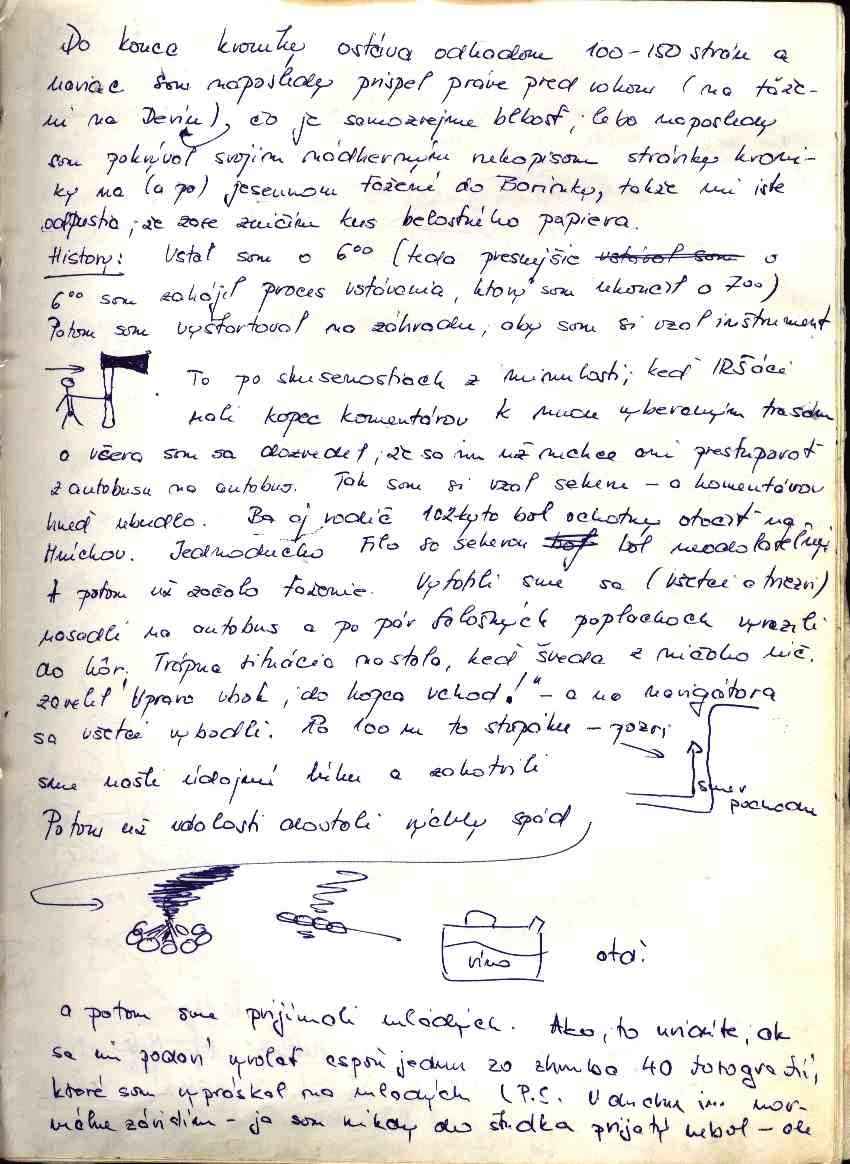 Do konca kroniky ostáva odhadom 100-150 strán a
naviac som naposledy prispel práve pred rokom (na ťaže-
ní na Devín), čo je samozrejme blbosť, lebo naposledy
som pokrýval svojim nádherným rukopisom stránky kroni-
ky na (a po) jesennom ťažení do Borinky, takže mi iste
odpustia, že zase zničím kus belostného papiera.
History: Vstal som o 6⁰⁰ (teda presnejšie vstával som o
6⁰⁰ som zahájil proces vstávania, ktorý som ukončil o 7⁰⁰)
Potom som vyštartoval na záhradu, aby som si vzal inštrument
. To po skúsenostiach z minulosti, keď IRŠáci
mali kopec komentárov k mnou vyberaným trasám
a včera som sa dozvedel, že sa im už nechce ani prestupovať
z autobusu na autobus. Tak som si vzal sekeru – a komentárov
hneď ubudlo. Ba aj vodič 102kyto bol ochotný otočiť na
Hníchov. Jednoducho Filo so sekerou bol bol neodolateľný
A potom už začalo ťaženie. Vytopili sme sa (všetci a triezvi)
nasadli na autobus a po pár falošných poplachoch vyrazili
do hôr. Trápna situácia nastala, keď Šveda z ničoho nič
zavelil "Vpravo vbok, do kopca vchod!" – a na navigátora
sa všetci vybodli. Po 100 m to stopäku – pozri
smer
pochodu
sme našli údajnú lúku a zakotvili
Potom už udalosti dostali rýchly spád
víno
atď:
a potom sme prijímali mladých. Ako, to uvidíte, ak
sa mi podarí vyvolať aspoň jednu zo zhruba 40 fotografií,
ktoré som vypráskal na mladých (P.S. V duchu im nor-
málne závidím – ja som nikdy do študka prijatý nebol – ale